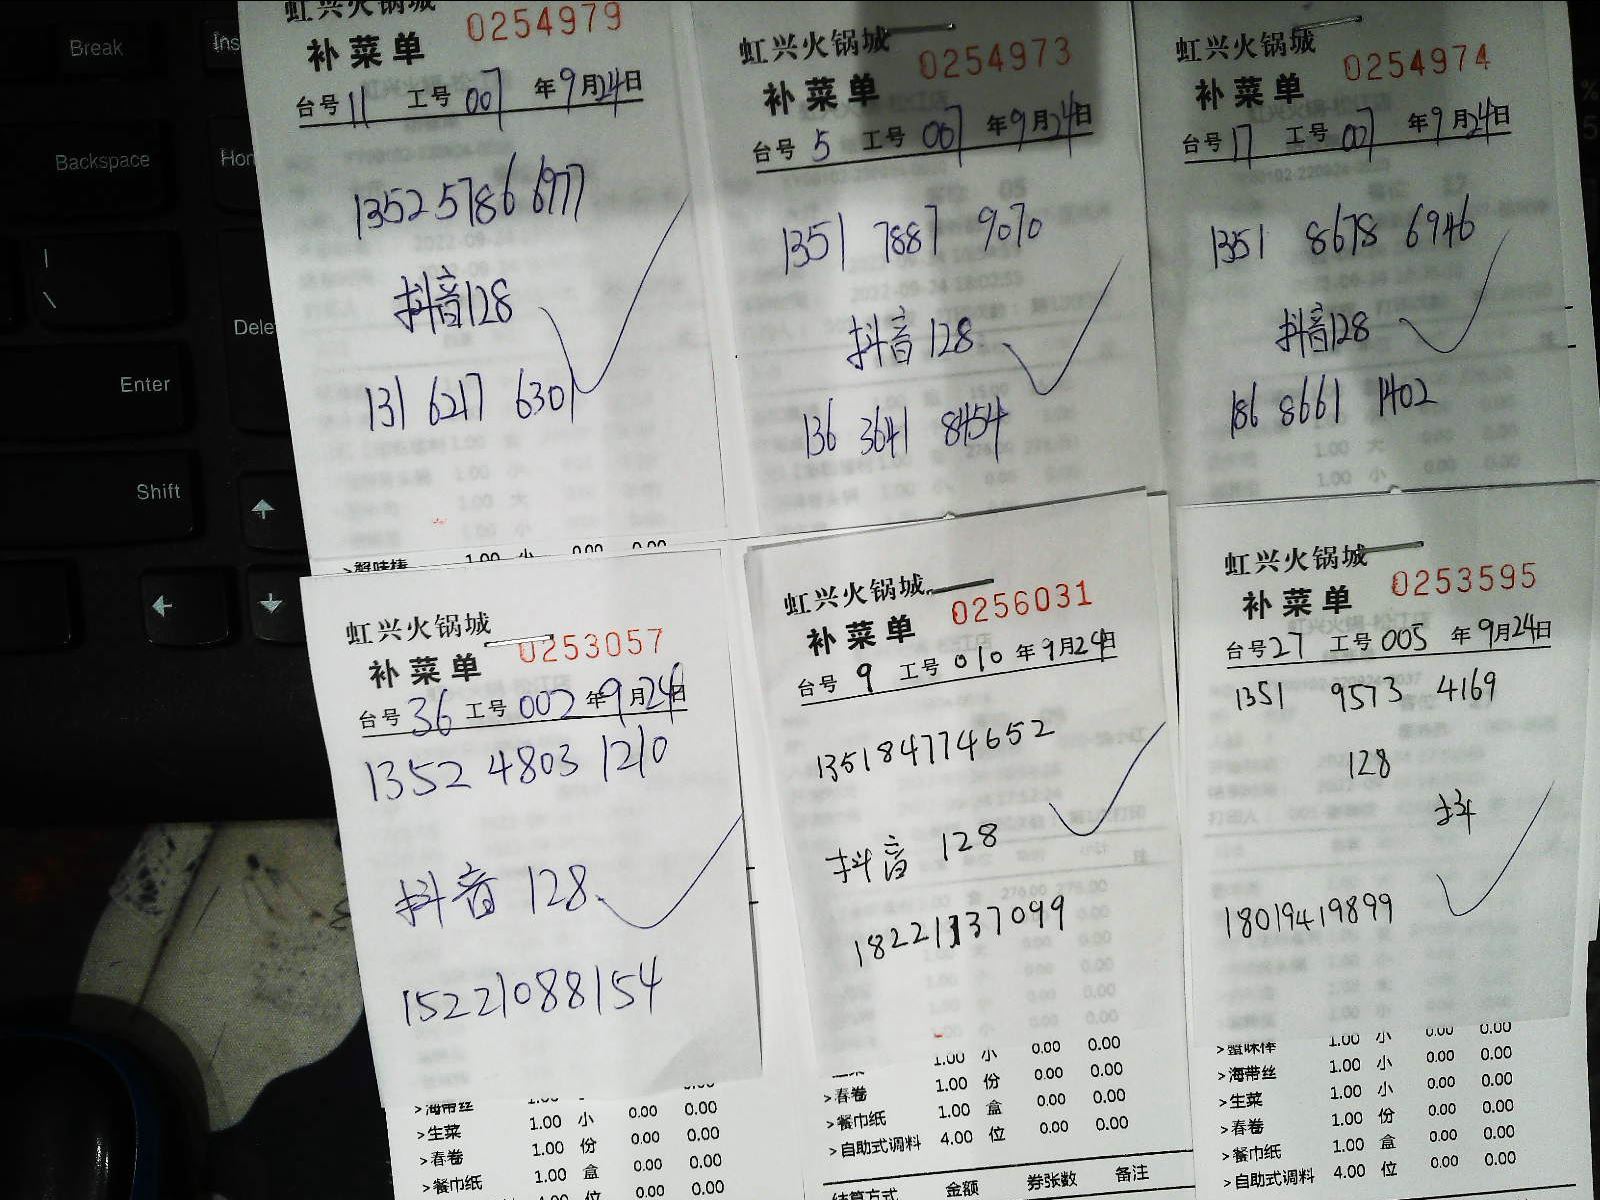 Break
Ins
Backspace
Hom
|
\
Dele
Enter
Shift
虹兴火锅城
0254979
补菜单
台号 11 工号 007 年 9 月 24 日
1352 5786 6977
抖音128
131 6217 6301
>蟹味棒 1.00 小 0.00 0.00
虹兴火锅城
0254973
补菜单
台号 5 工号 007 年 9 月 24 日
1351 7887 9070
抖音128
136 3641 8454
虹兴火锅城
0254974
补菜单
台号 17 工号 007 年 9 月 24 日
1351 8678 6946
抖音128
186 8661 1402
虹兴火锅城
0253057
补菜单
台号 36 工号 002 年 9 月 24 日
1352 4803 1210
抖音 128
15221088154
>海带丝 1.00
>生菜 1.00 小 0.00 0.00
>春卷 1.00 份 0.00 0.00
>餐巾纸 1.00 盒 0.00 0.00
4.00 位 0.00 0.00
虹兴火锅城
0256031
补菜单
台号 9 工号 010 年 9 月 24 日
135184774652
抖音 128
18221137099
1.00 小 0.00 0.00
>春卷 1.00 份 0.00 0.00
>餐巾纸 1.00 盒 0.00 0.00
>自助式调料 4.00 位 0.00 0.00
结算方式 金额 券张数 备注
虹兴火锅城
0253595
补菜单
台号 27 工号 005 年 9 月 24 日
1351 9573 4169
128
抖
18019419899
>蟹味棒 1.00 小 0.00 0.00
>海带丝 1.00 小 0.00 0.00
>生菜 1.00 小 0.00 0.00
>春卷 1.00 份 0.00 0.00
>餐巾纸 1.00 盒 0.00 0.00
>自助式调料 4.00 位 0.00 0.00